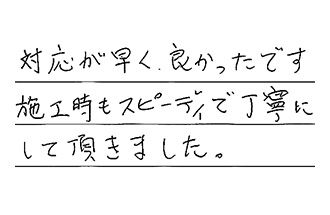 対応が早く、良かったです
施工時もスピーディで丁寧に
して頂きました。